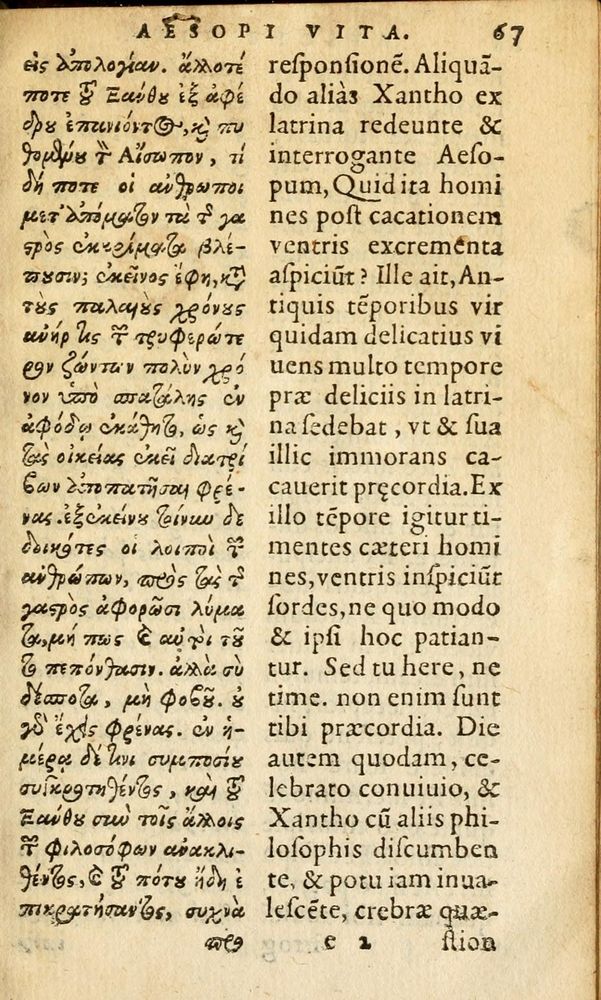 AESOPI VITA. 67
εἰς ἀπολογίαν. ἄλλοτέ
ποτε τοῦ Ξάνθου ἐξ ἀφέ
δρου ἐπανιόντος, καὶ πυ
θομένου τὸν Αἴσωπον, τί
δή ποτε οἱ ἄνθρωποι
μετ' ἀπόπατον τὰ τῆς γα
στρὸς ἐκκρίματα βλέ-
πουσιν; ἐκεῖνος ἔφη, κατὰ
τοὺς παλαιοὺς χρόνους
ἀνήρ τις τῶν τρυφερώτε
ρον ζώντων πολὺν χρό
νον ὑπὸ σπατάλης ἐν
ἀφόδῳ ἐκάθητο, ὡς καὶ
τὰς οἰκείας ἐκεῖ διατρί
βων ἀποπατῆσαι φρέ-
νας. ἐξ ἐκείνου τοίνυν δε
δοικότες οἱ λοιποὶ τῶν
ἀνθρώπων, πρὸς τὰς τῆς
γαστρὸς ἀφορῶσι λύμα
τα, μή πως καὶ αὐτοὶ τοῦ
το πεπόνθασιν. ἀλλὰ σὺ
δέσποτα, μὴ φοβοῦ. οὐ
γὰρ ἔχεις φρένας. ἐν ἡ-
μέρᾳ δέ τινι συμποσίου
συγκροτηθέντος, καὶ τοῦ
Ξάνθου σὺν τοῖς ἄλλοις
τῶν φιλοσόφων ἀνακλι-
θέντος, καὶ τοῦ πότου ἤδη ἐ
πικρατήσαντος, συχνὰ
προ
responsionē. Aliquā-
do aliàs Xantho ex
latrina redeunte &
interrogante Aeso-
pum, Quid ita homi
nes post cacationem
ventris excrementa
aspiciūt? Ille ait, An-
tiquis tēporibus vir
quidam delicatius vi
uens multo tempore
præ deliciis in latri-
na sedebat, vt & sua
illic immorans ca-
cauerit pręcordia. Ex
illo tēpore igitur ti-
mentes cæteri homi
nes, ventris inspiciūt
sordes, ne quo modo
& ipsi hoc patian-
tur. Sed tu here, ne
time. non enim sunt
tibi præcordia. Die
autem quodam, ce-
lebrato conuiuio, &
Xantho cū aliis phi-
losophis discumben
te, & potu iam inua-
lescēte, crebræ quæ-
e 2 stion